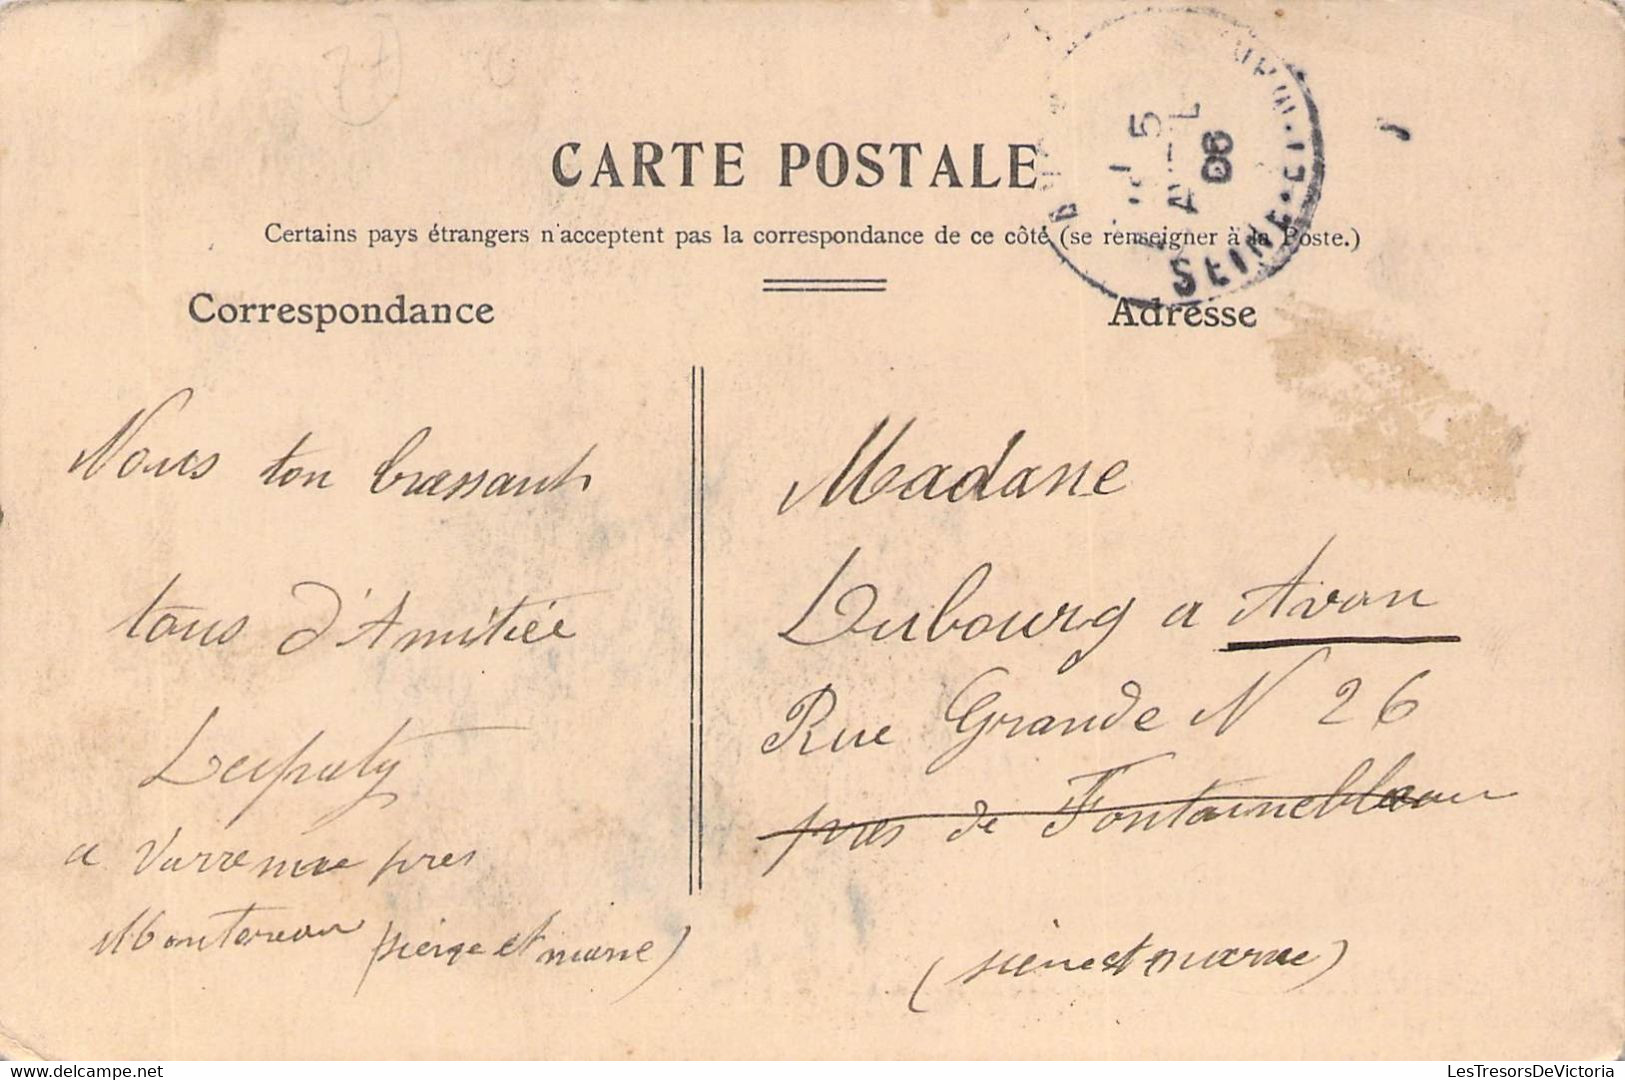 CARTE POSTALE
Certains pays étrangers n'acceptent pas la correspondance de ce côté (se renseigner à la Poste.)
5
06
SEINE-ET-M
Correspondance
Adresse
Nous ton brassant
tous d'Amitiée
a Varenne pres
Montereau (sieine et marne)
Madame
Dubourg a Avon
Rue Grande N 26
pres de Fontainebleau
(siene et marne)
LesTresorsDeVictoria